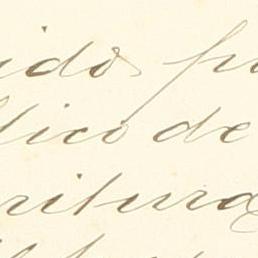 ido p
lico de
ritura